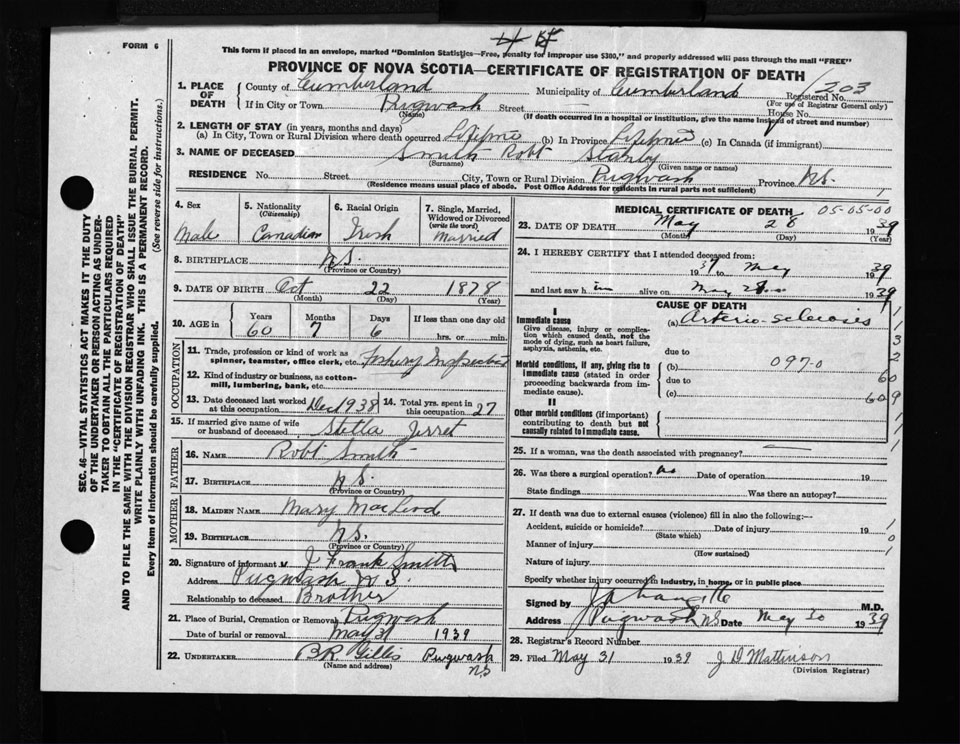 FORM 6
This form if placed in an envelope, marked "Dominion Statistics—Free, penalty for improper use $300," and properly addressed will pass through the mail "FREE"
PROVINCE OF NOVA SCOTIA—CERTIFICATE OF REGISTRATION OF DEATH
SEC. 46—VITAL STATISTICS ACT MAKES IT THE DUTY
OF THE UNDERTAKER OR PERSON ACTING AS UNDER-
TAKER TO OBTAIN ALL THE PARTICULARS REQUIRED
IN THE "CERTIFICATE OF REGISTRATION OF DEATH"
AND TO FILE THE SAME WITH THE DIVISION REGISTRAR WHO SHALL ISSUE THE BURIAL PERMIT.
WRITE PLAINLY WITH UNFADING INK. THIS IS A PERMANENT RECORD.
Every item of information should be carefully supplied. (See reverse side for instructions.)
1. PLACE OF DEATH County of Cumberland Municipality of Cumberland Registered No. 203
(For use of Registrar General only)
If in City or Town Pugwash Street — House No.
(Name) (If death occurred in a hospital or institution, give the name instead of street and number)
2. LENGTH OF STAY (in years, months and days)
(a) In City, Town or Rural Division where death occurred Lifetime (b) In Province Lifetime (c) In Canada (if immigrant)
3. NAME OF DECEASED Smith Robt Stanley
(Surname) (Given name or names)
RESIDENCE No. Street City, Town or Rural Division Pugwash Province N.S.
(Residence means usual place of abode. Post Office Address for residents in rural parts not sufficient)
4. Sex Male
5. Nationality (Citizenship) Canadian
6. Racial Origin Irish
7. Single, Married, Widowed or Divorced (write the word) Married
8. BIRTHPLACE N.S.
(Province or Country)
9. DATE OF BIRTH Oct 22 1878
(Month) (Day) (Year)
10. AGE in Years 60 Months 7 Days 6 If less than one day old hrs. or min.
OCCUPATION
11. Trade, profession or kind of work as spinner, teamster, office clerk, etc. Fishery
12. Kind of industry or business, as cotton-mill, lumbering, bank, etc.
13. Date deceased last worked at this occupation Dec 1938 14. Total yrs. spent in this occupation 27
15. If married give name of wife or husband of deceased Stella Jerret
FATHER
16. NAME Robt Smith
17. BIRTHPLACE N.S.
(Province or Country)
MOTHER
18. MAIDEN NAME Mary MacLeod
19. BIRTHPLACE N.S.
(Province or Country)
20. Signature of informant J Frank Smith
Address Pugwash N.S.
Relationship to deceased Brother
21. Place of Burial, Cremation or Removal Pugwash
Date of burial or removal May 31 1939
22. UNDERTAKER B R. Gillis Pugwash N.S
(Name and address)
MEDICAL CERTIFICATE OF DEATH 05-05-00
23. DATE OF DEATH May 28 1939
(Month) (Day) (Year)
24. I HEREBY CERTIFY that I attended deceased from:
1937 to May 1939
and last saw him alive on May 1939
CAUSE OF DEATH
I
Immediate cause
Give disease, injury or complication which caused death, not the mode of dying, such as heart failure, asphyxia, asthenia, etc.
(a) Arterio-sclerosis
due to
Morbid conditions, if any, giving rise to immediate cause (stated in order proceeding backwards from immediate cause).
(b) 097-0
due to
(c)
II
Other morbid conditions (if important) contributing to death but not causally related to immediate cause.
25. If a woman, was the death associated with pregnancy?
26. Was there a surgical operation? No Date of operation 19
State findings Was there an autopsy?
27. If death was due to external causes (violence) fill in also the following:—
Accident, suicide or homicide? Date of injury 19
(State which)
Manner of injury
(How sustained)
Nature of injury
Specify whether injury occurred in industry, in home, or in public place
Signed by M.D.
Address Pugwash N.S Date May 30 1939
28. Registrar's Record Number
29. Filed May 31 1939 J D Mattinson
(Division Registrar)